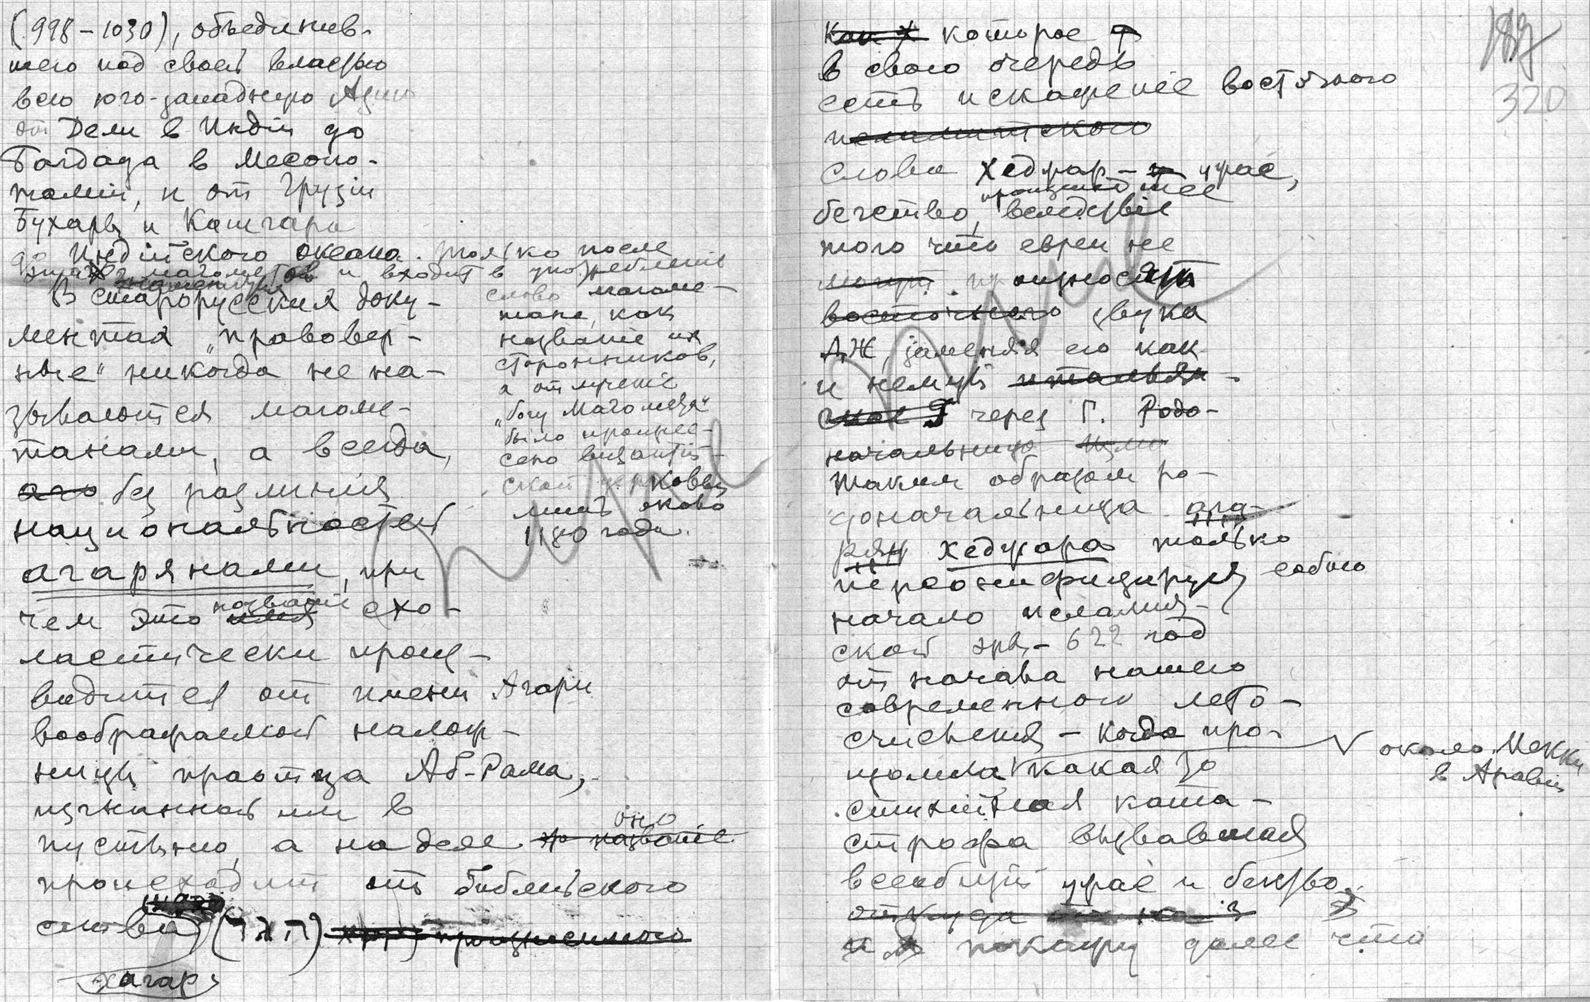 (998–1030), объединив-
шего под своей властью
всю юго-западную Азию
от Дели в Индии до
Багдада в Месопо-
таміи, и от Грузіи
Бухары и Кашгара
до Индійского океана. только после
и входит в употребленіе
слово магоме-
тане, как
названіе их
сторонников,
а отлученіе
„богу Магомеда“
было произне-
сено византій-
ской церковью
лишь около
1180 года.
В старорусских доку-
ментах „правовер-
ные“ никогда не на-
зываются магоме-
танами, а всегда,
без различія
национальностей
агарянами, при
чем это названіе схо-
ластически произ-
водится от имени Агари
воображаемой налож-
ницы праотца Аб-Рама,
изгнанной им в
пустыню, а на деле оно
происходит от библейского
слова (הגר)
хагар
которое
в свою очередь
есть искаженіе восточного
слова Хеджра – ураё,
бегство, происшедшее вследствіе
того что евреи не
произносят
звука
ДЖ заменяя его как
и немцы
через Г.
Таким образом ро-
доначальница ага-
рян хеджара только
персонифицируя собою
начало ислами-
ской эры – 622 год
от начала нашего
современного лето-
счисленія – когда про-
изошла какая то
около Мекки
в Аравіи
стихийная ката-
строфа вызвавшая
всеобщій ураё и бегство.
покажу далее что
187
320